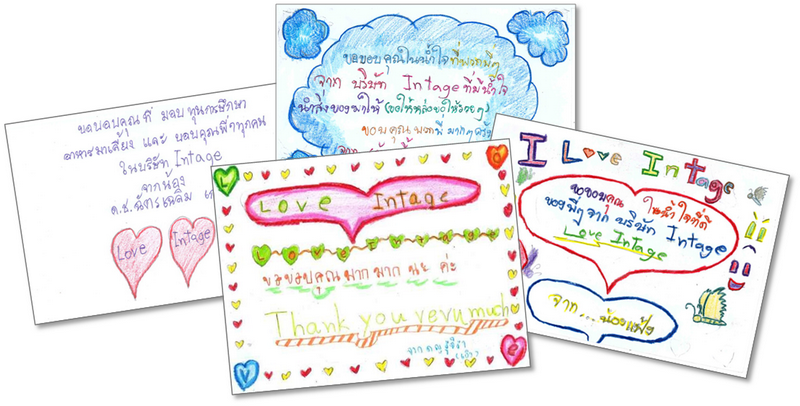 ขอขอบคุณที่ มอบ ทุนการศึกษา
อาหารมาเลี้ยง และ ขอบคุณพี่ๆทุกคน
ในบริษัท Intage
จากน้อง
ด.ช. ฉัตรเฉลิม
Love Intage
ขอขอบคุณในน้ำใจที่พวกพี่ๆ
จาก บริษัท Intage ที่มีน้ำใจ
นำสิ่งของมาให้ (ขอให้หล่อขอให้รวยๆ)
ขอบคุณพวกพี่มากๆครับ
จาก
L o V e
Love Intage
Love Intage
ขอขอบคุณมาก มาก นะ ค่ะ
Thank you veru much
จาก ด.ญ. รุจิรา
I Love Intage
ขอขอบคุณ ในน้ำใจที่ดี
ของพี่ๆ จาก บริษัท Intage
Love Intage
จาก...น้องแป้ง